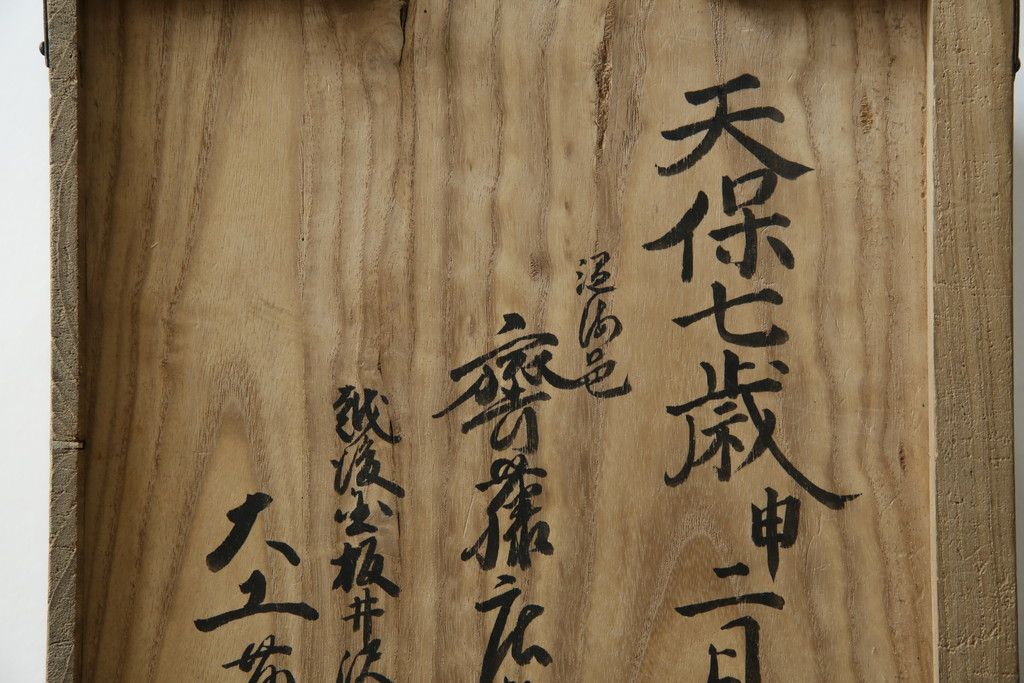 天保七歳申二月
温海邑
齊藤
越後出板井沢
大工